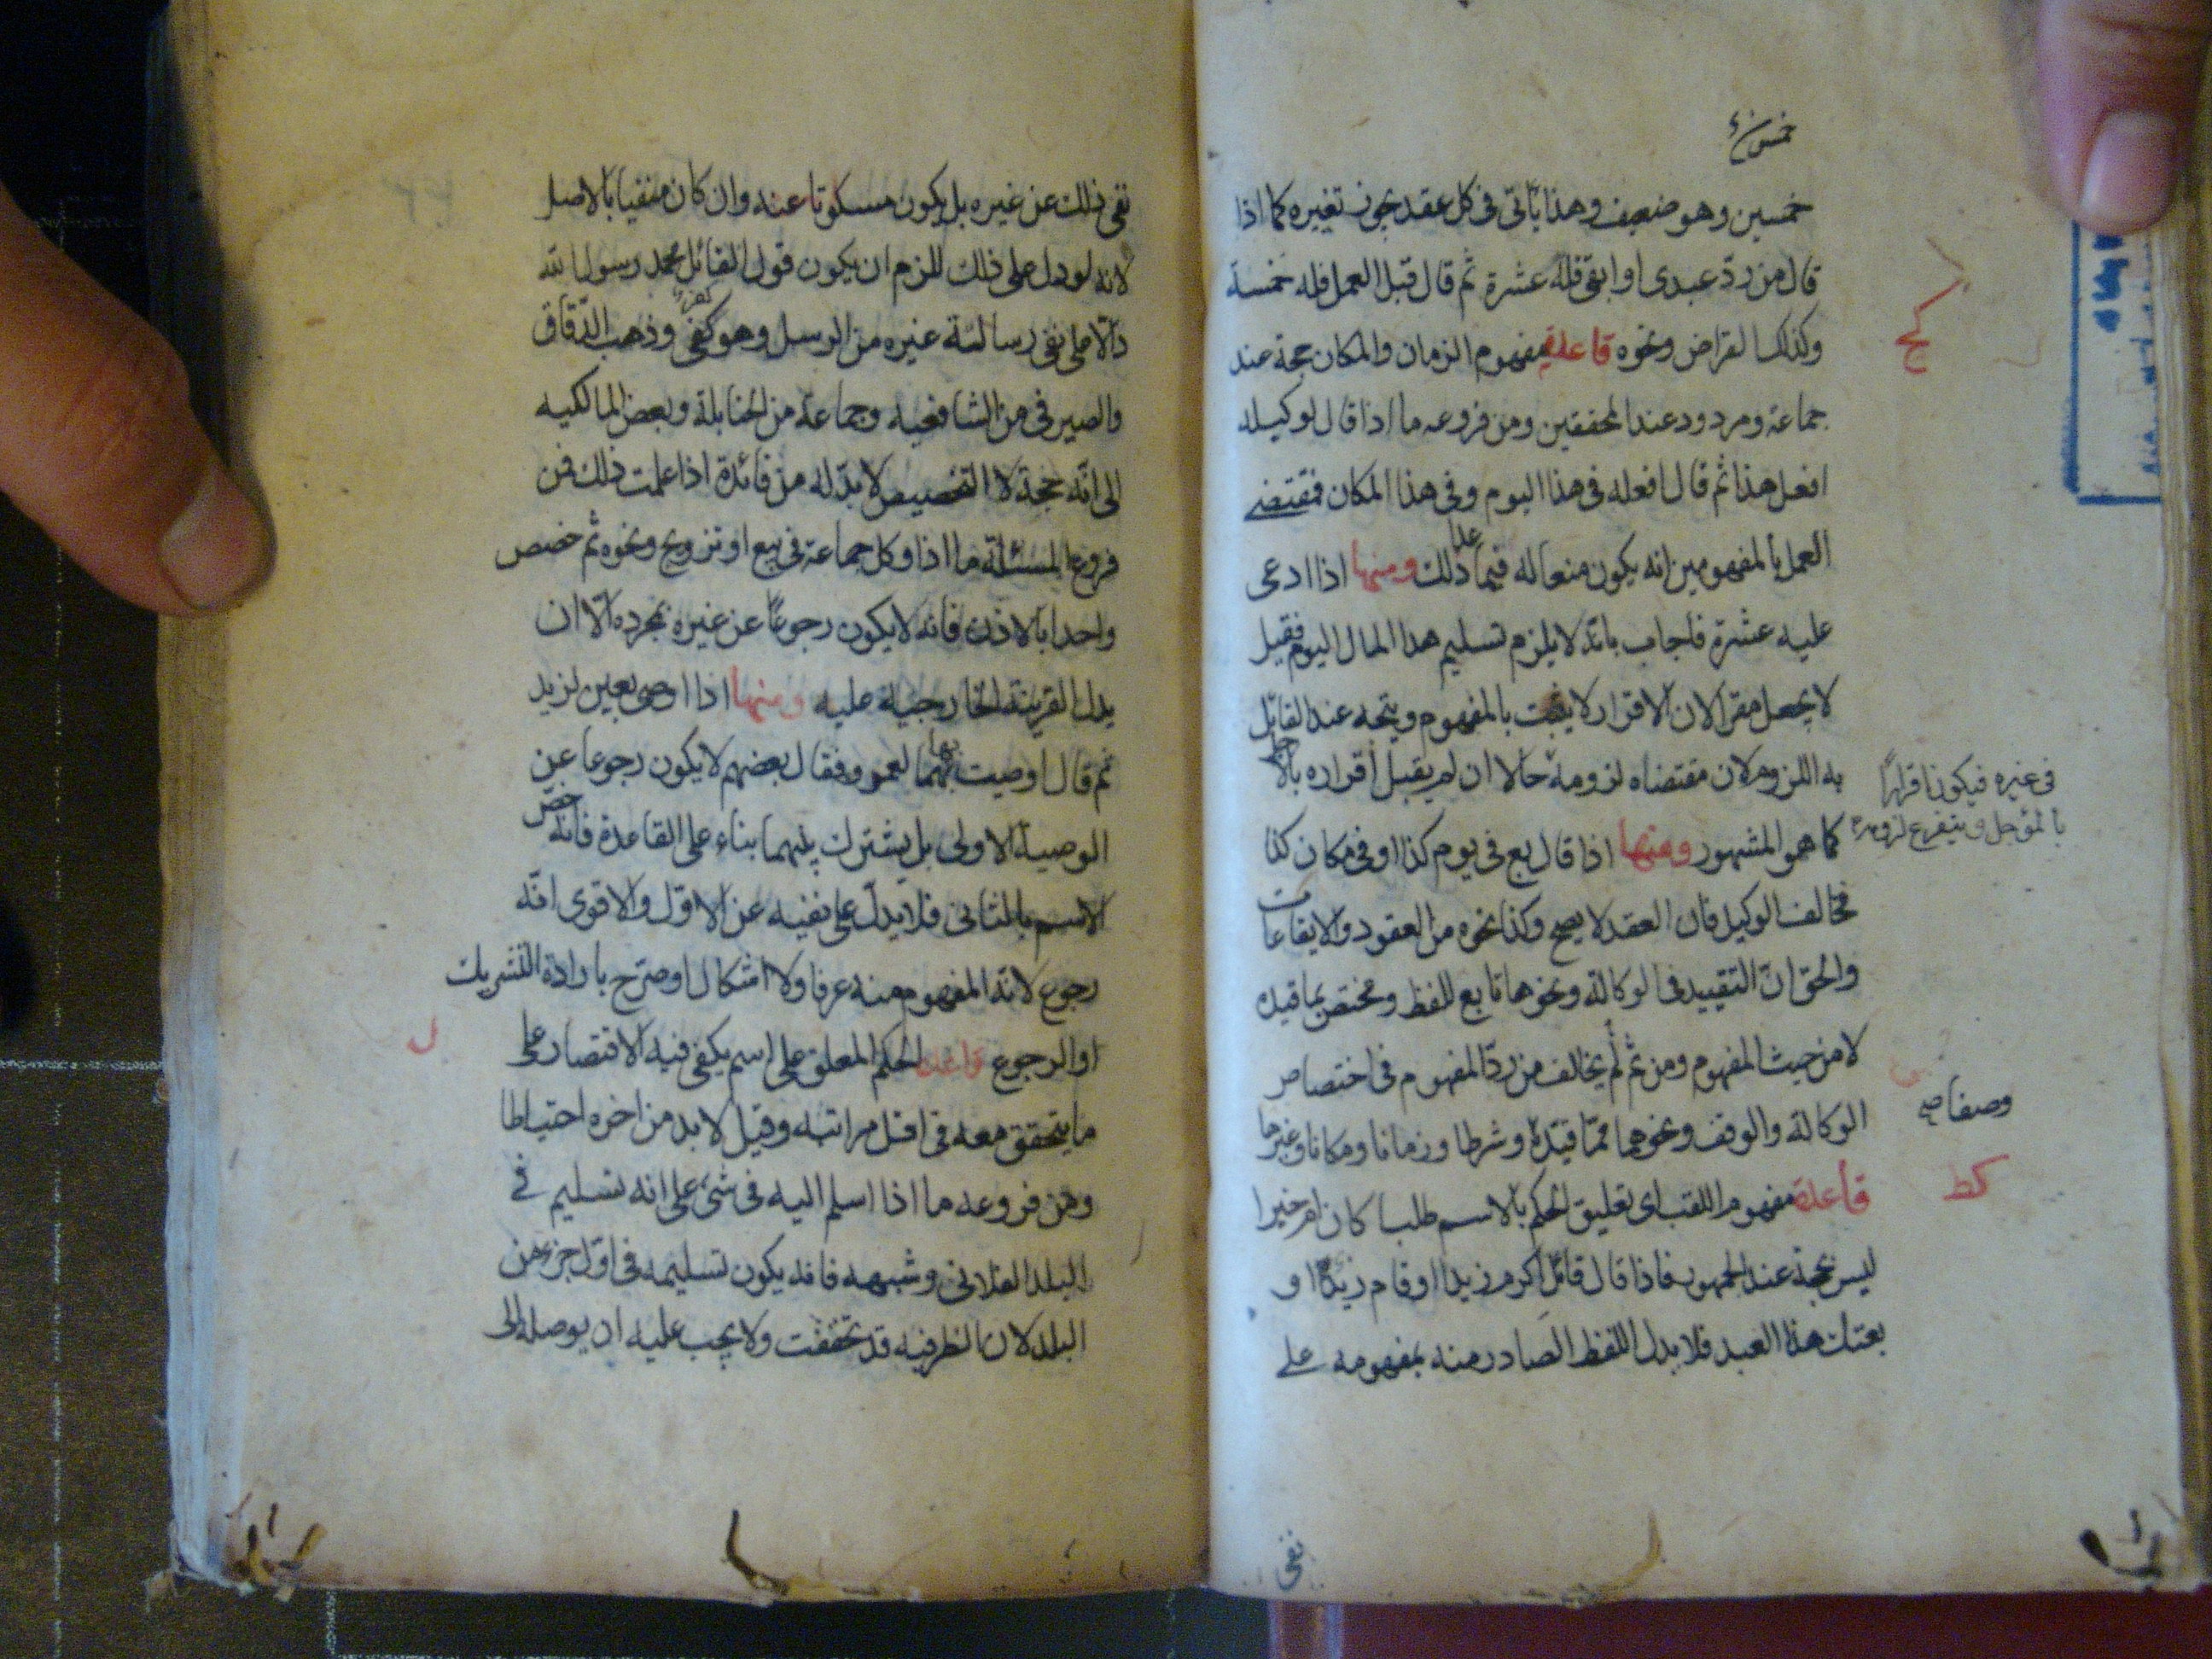 خمسين
خمسين وهو ضعيف وهذا يأتي في كل عقد يجوز تغييره كما اذا
قال من ردّ عبدي او ابقي فله عشرة ثم قال قبل العمل فله خمسة
وكذلك القراض ونحوه قاعدة مفهوم الزمان والمكان حجة عند
كح
جماعة ومردود عند المحققين ومن فروعه ما اذا قال لوكيله
افعل هذا ثم قال افعله في هذا اليوم وفي هذا المكان فمقتضى
العمل بالمفهومين انه يكون منعا له فيما عدا ذلك ومنها اذا ادعى
عليه عشرة فاجاب بانه لا يلزم تسليم هذا المال اليوم فقيل
لا يجعل مقرا لان الاقرار لا يثبت بالمفهوم ويتجه عند القائل
به اللزوم لان مقتضاه لزومه حالا ان لم يقبل اقراره بالاجل
في غيره فيكون اقرارا
بالمؤجل ويتفرع لزومه
كما هو المشهور ومنها اذا قال بع في يوم كذا او في مكان كذا
فخالف الوكيل فان العقد لا يصح وكذا نحوه من العقود والايقاعات
والحق ان التقييد في الوكالة ونحوها تابع للفظ ومختص بما قيده
لا من حيث المفهوم ومن ثم لم يخالف من ردّ المفهوم في اختصاص
الوكالة والوقف ونحوهما مما قيده وشرطا وزمانا ومكانا وغيرها
وصفا صح
قاعدة مفهوم اللقب اى تعليق الحكم بالاسم طلبا كان ام خبرا
كط
ليس بحجة عند الجمهور فاذا قال قائل اكرم زيدا او قام زيد او
بعتك هذا العبد فلا يدل اللفظ الصادر منه بمفهومه على
نفى
نفى ذلك عن غيره بل يكون مسكوتا عنه وان كان منفيا بالاصل
لانه لو دل على ذلك للزم ان يكون قول القائل محمد رسول الله
دالّا على نفى رسالة غيره من الرسل وهو كفر وذهب الدّقاق
والصيرفي من الشافعيه وجماعة من الحنابلة وبعض المالكيه
الى انّه حجة لا التخصيص لا بدّ له من فائدة اذا علمت ذلك فمن
فروع المسئلة ما اذا وكل جماعة في بيع او تزويج ونحوه ثم خصص
واحدا بالاذن فانه لا يكون رجوعا عن غيره بمجرده الّا ان
يدل القرينة الخارجية عليه ومنها اذا اوصى بعين لزيد
ثم قال اوصيت بها لعمرو فقال بعضهم لا يكون رجوعا عن
الوصية الاولى بل يشترك بينهما بناء على القاعدة فانه خصّ
الاسم بالثاني فلا يدلّ على نفيه عن الاوّل والاقوى انّه
رجوع لانّه المفهوم منه عرفا ولا اشكال لو صرّح بارادة التشريك
او الرجوع قاعدة الحكم المعلق على اسم يكفي فيه الاقتصار على
ل
ما يتحقق معه في اقل مراتبه وقيل لا بد من اخره احتياطا
ومن فروعه ما اذا اسلم اليه في شئ على انه تسليم في
البلد الفلاني وشبهه فانه يكون تسليمه في اوّل جزء من
البلد لان الظرفيه قد تحققت ولا يجب عليه ان يوصله الى